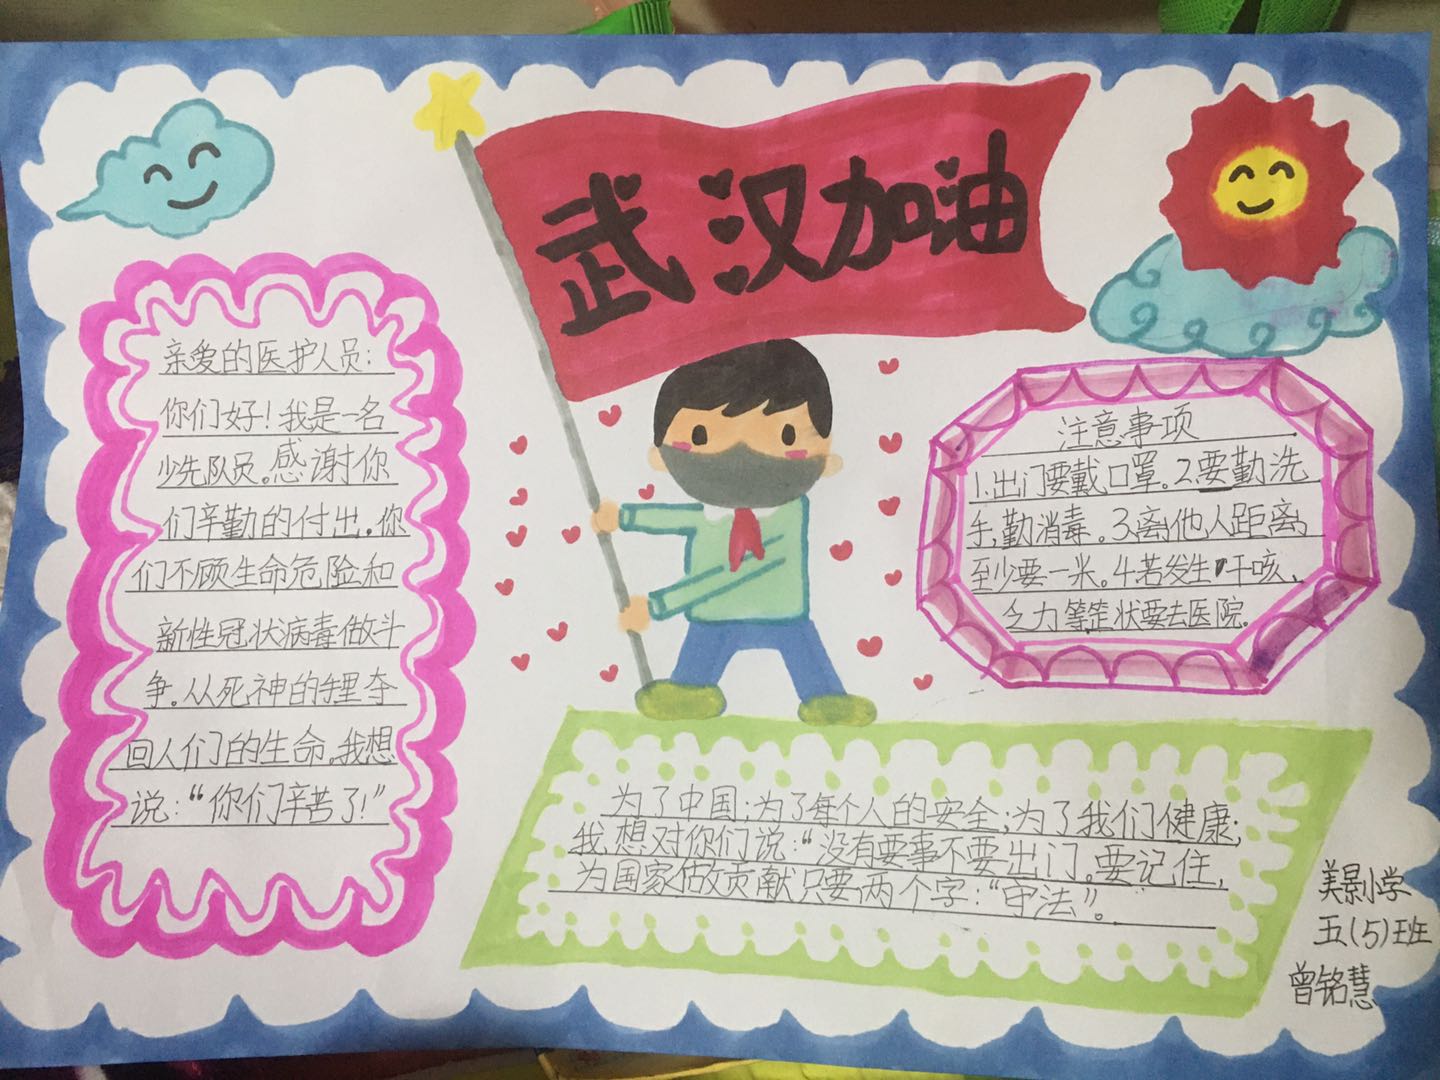 武汉加油
亲爱的医护人员：
你们好！我是一名
少先队员。感谢你
们辛勤的付出。你
们不顾生命危险和
新性冠状病毒做斗
争。从死神的手里夺
回人们的生命。我想
说：“你们辛苦了！”
注意事项
1.出门要戴口罩。2.要勤洗
手，勤消毒。3.离他人距离
至少要一米。4.若发生干咳、
乏力等症状要去医院。
为了中国；为了每个人的安全；为了我们健康；
我想对你们说：“没有要事不要出门。要记住，
为国家做贡献只要两个字：“守法”。
美景小学
五（5）班
曾铭慧